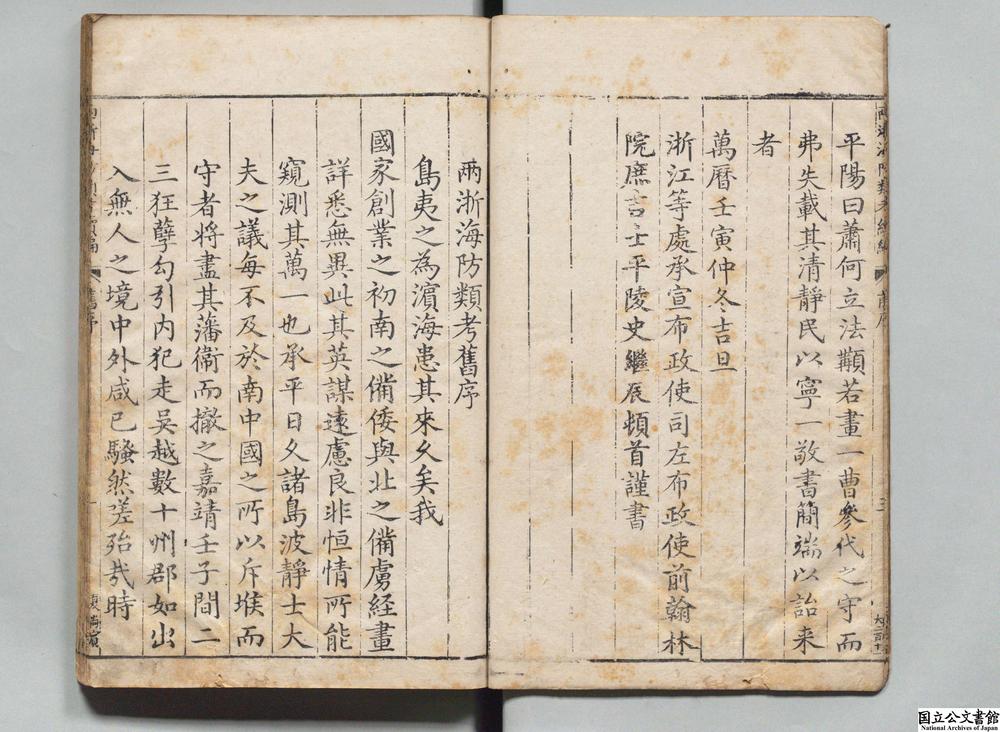 平陽曰蕭何立法顜若畫一曹參代之守而
弗失載其清靜民以寧一敬書簡端以詒来
者
萬曆壬寅仲冬吉旦
浙江等處承宣布政使司左布政使前翰林
院庶吉士平陵史繼辰頓首謹書
兩浙海防類考舊序
島夷之為濵海患其來久矣我
國家創業之初南之備倭與北之備虜経畫
詳悉無異此其英謀遠慮良非恒情所能
窺測其萬一也承平日久諸島波靜士大
夫之議每不及於南中國之所以斥堠而
守者將盡其藩衞而撤之嘉靖壬子間二
三狂孽勾引内犯走吳越數十州郡如出
入無人之境中外咸已騷然嗟殆哉時
兩浙海防類考續編
舊序
一
国立公文書館
National Archives of Japan